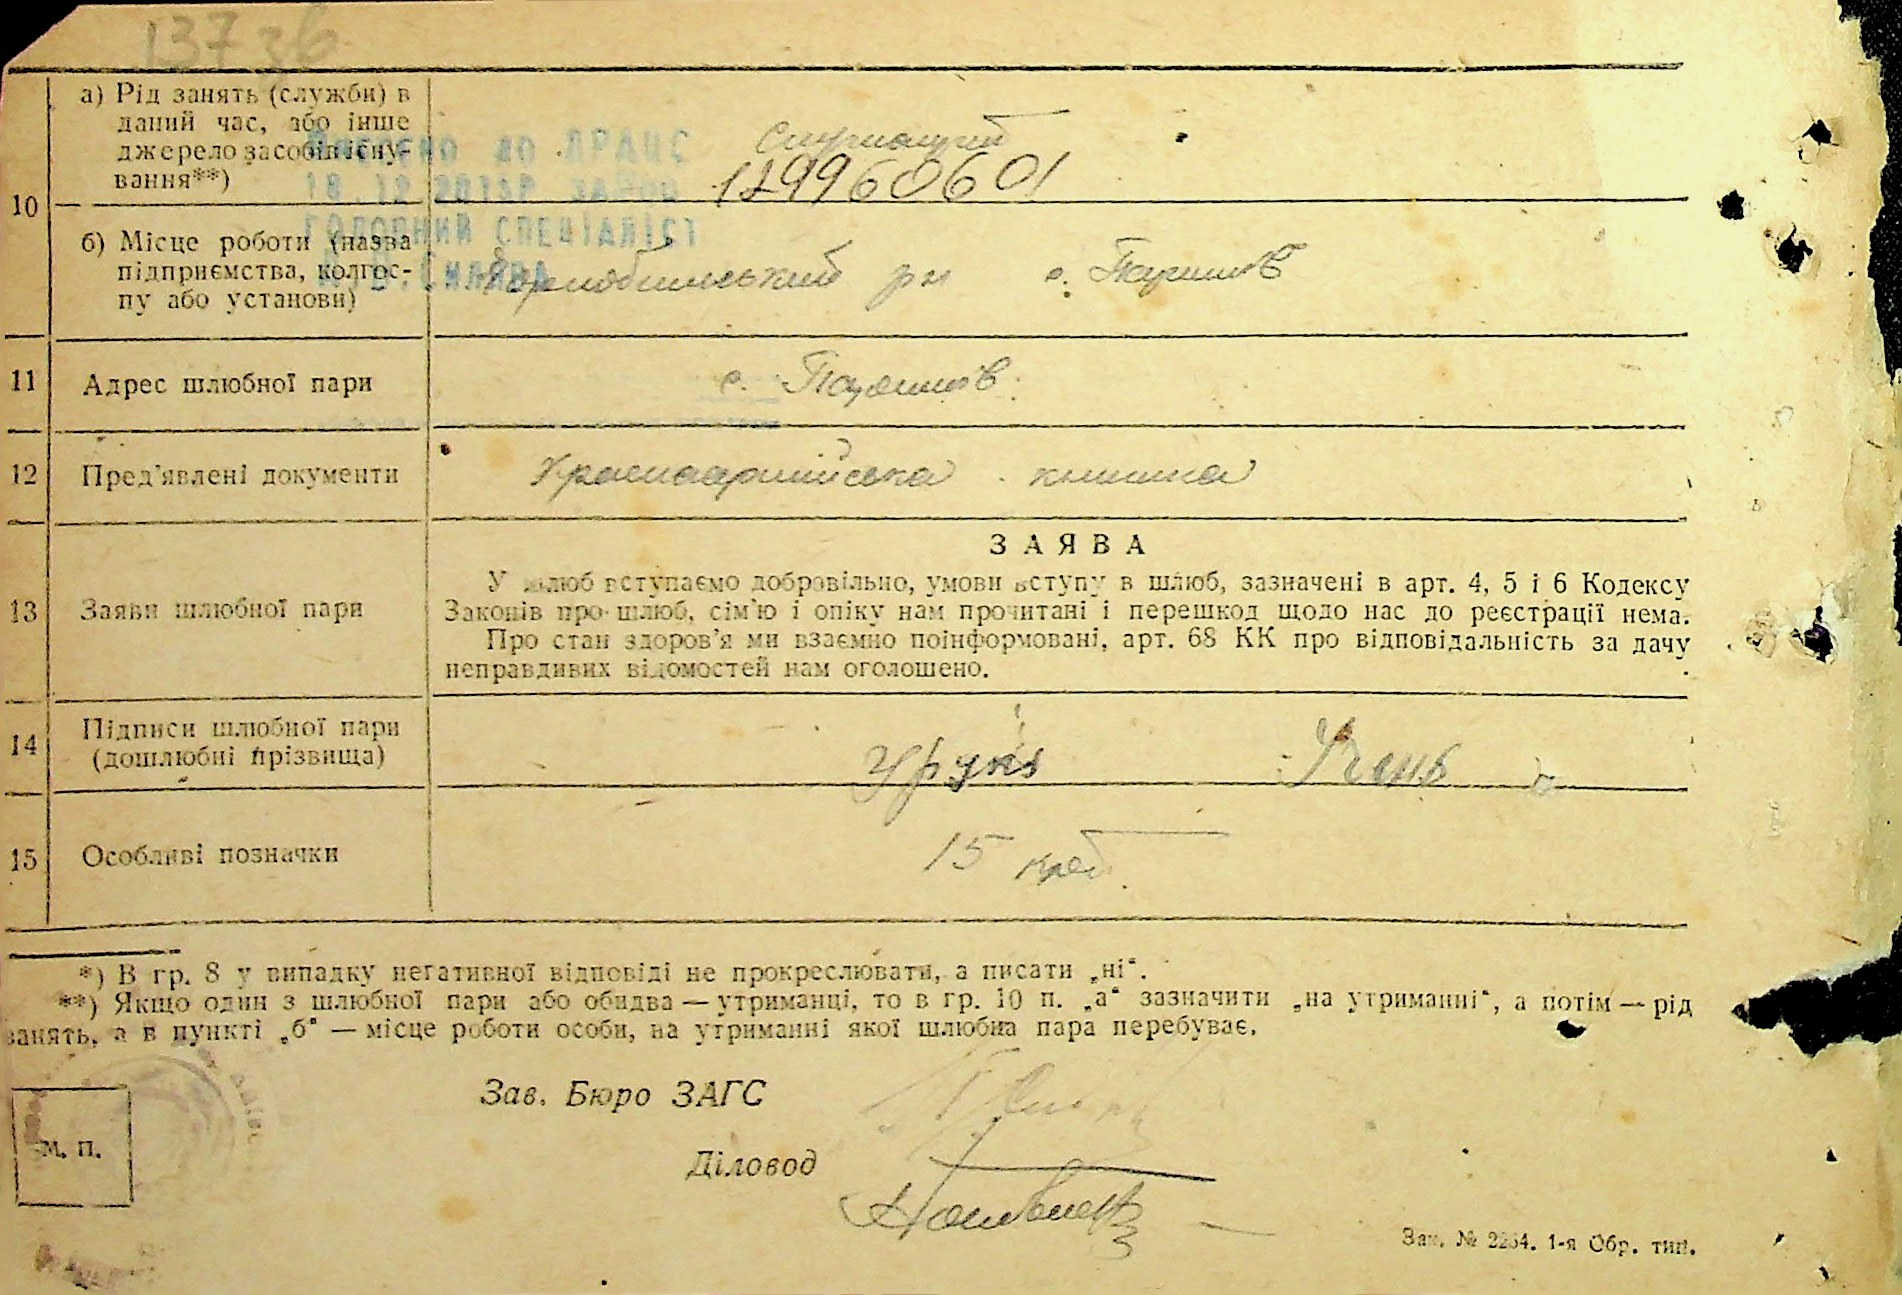 137 зв
10
а) Рід занять (служби) в
даний час, або інше
джерело засобів існу-
вання**)
129960601
Внесено до ДРАЦС
ГОЛОВНИЙ СПЕЦІАЛІСТ
б) Місце роботи (назва
підприємства, колгос-
пу або установи)
рн с.
11
Адрес шлюбної пари
с.
12
Пред'явлені документи
Красноармійська книжка
13
Заяви шлюбної пари
ЗАЯВА
У шлюб вступаємо добровільно, умови вступу в шлюб, зазначені в арт. 4, 5 і 6 Кодексу
Законів про шлюб, сім'ю і опіку нам прочитані і перешкод щодо нас до реєстрації нема.
Про стан здоров'я ми взаємно поінформовані, арт. 68 КК про відповідальність за дачу
неправдивих відомостей нам оголошено.
14
Підписи шлюбної пари
(дошлюбні прізвища)
15
Особливі позначки
15 крб
*) В гр. 8 у випадку негативної відповіді не прокреслювати, а писати „ні“.
**) Якщо один з шлюбної пари або обидва — утриманці, то в гр. 10 п. „а“ зазначити „на утриманні“, а потім — рід
занять, а в пункті „б“ — місце роботи особи, на утриманні якої шлюбна пара перебуває.
Зав. Бюро ЗАГС
м. п.
Діловод
Зак. № 2264. 1-я Обр. тип.